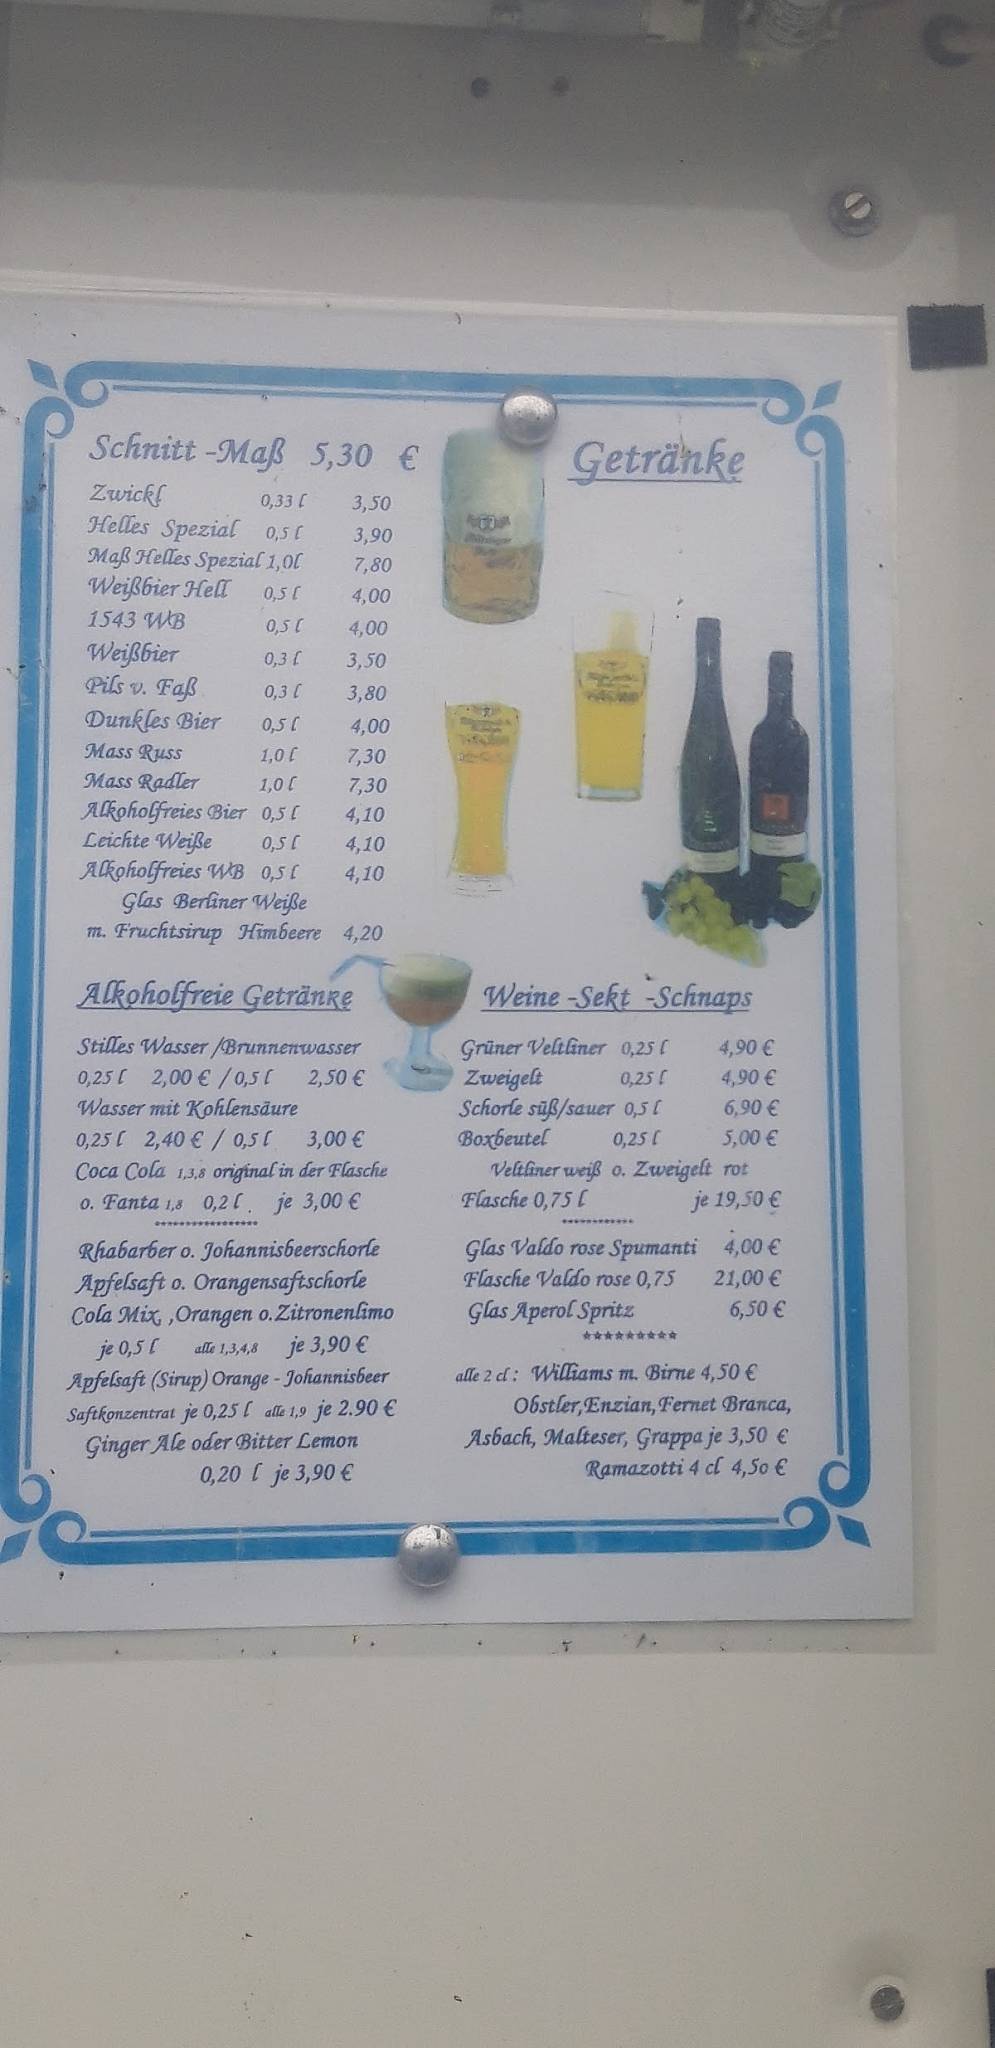 Getränke
Schnitt -Maß 5,30 €
Zwickl 0,33 l 3,50
Helles Spezial 0,5 l 3,90
Maß Helles Spezial 1,0l 7,80
Weißbier Hell 0,5 l 4,00
1543 WB 0,5 l 4,00
Weißbier 0,3 l 3,50
Pils v. Faß 0,3 l 3,80
Dunkles Bier 0,5 l 4,00
Mass Russ 1,0 l 7,30
Mass Radler 1,0 l 7,30
Alkoholfreies Bier 0,5 l 4,10
Leichte Weiße 0,5 l 4,10
Alkoholfreies WB 0,5 l 4,10
Glas Berliner Weiße
m. Fruchtsirup Himbeere 4,20
Alkoholfreie Getränke
Stilles Wasser /Brunnenwasser
0,25 l 2,00 € / 0,5 l 2,50 €
Wasser mit Kohlensäure
0,25 l 2,40 € / 0,5 l 3,00 €
Coca Cola 1,3,8 original in der Flasche
o. Fanta 1,8 0,2 l . je 3,00 €
*****************
Rhabarber o. Johannisbeerschorle
Apfelsaft o. Orangensaftschorle
Cola Mix, ,Orangen o.Zitronenlimo
je 0,5 l alle 1,3,4,8 je 3,90 €
Apfelsaft (Sirup) Orange - Johannisbeer
Saftkonzentrat je 0,25 l alle 1,9 je 2.90 €
Ginger Ale oder Bitter Lemon
0,20 l je 3,90 €
Weine -Sekt -Schnaps
Grüner Veltliner 0,25 l 4,90 €
Zweigelt 0,25 l 4,90 €
Schorle süß/sauer 0,5 l 6,90 €
Boxbeutel 0,25 l 5,00 €
Veltliner weiß o. Zweigelt rot
Flasche 0,75 l je 19,50 €
************
Glas Valdo rose Spumanti 4,00 €
Flasche Valdo rose 0,75 21,00 €
Glas Aperol Spritz 6,50 €
*********
alle 2 cl : Williams m. Birne 4,50 €
Obstler,Enzian,Fernet Branca,
Asbach, Malteser, Grappa je 3,50 €
Ramazotti 4 cl 4,50 €